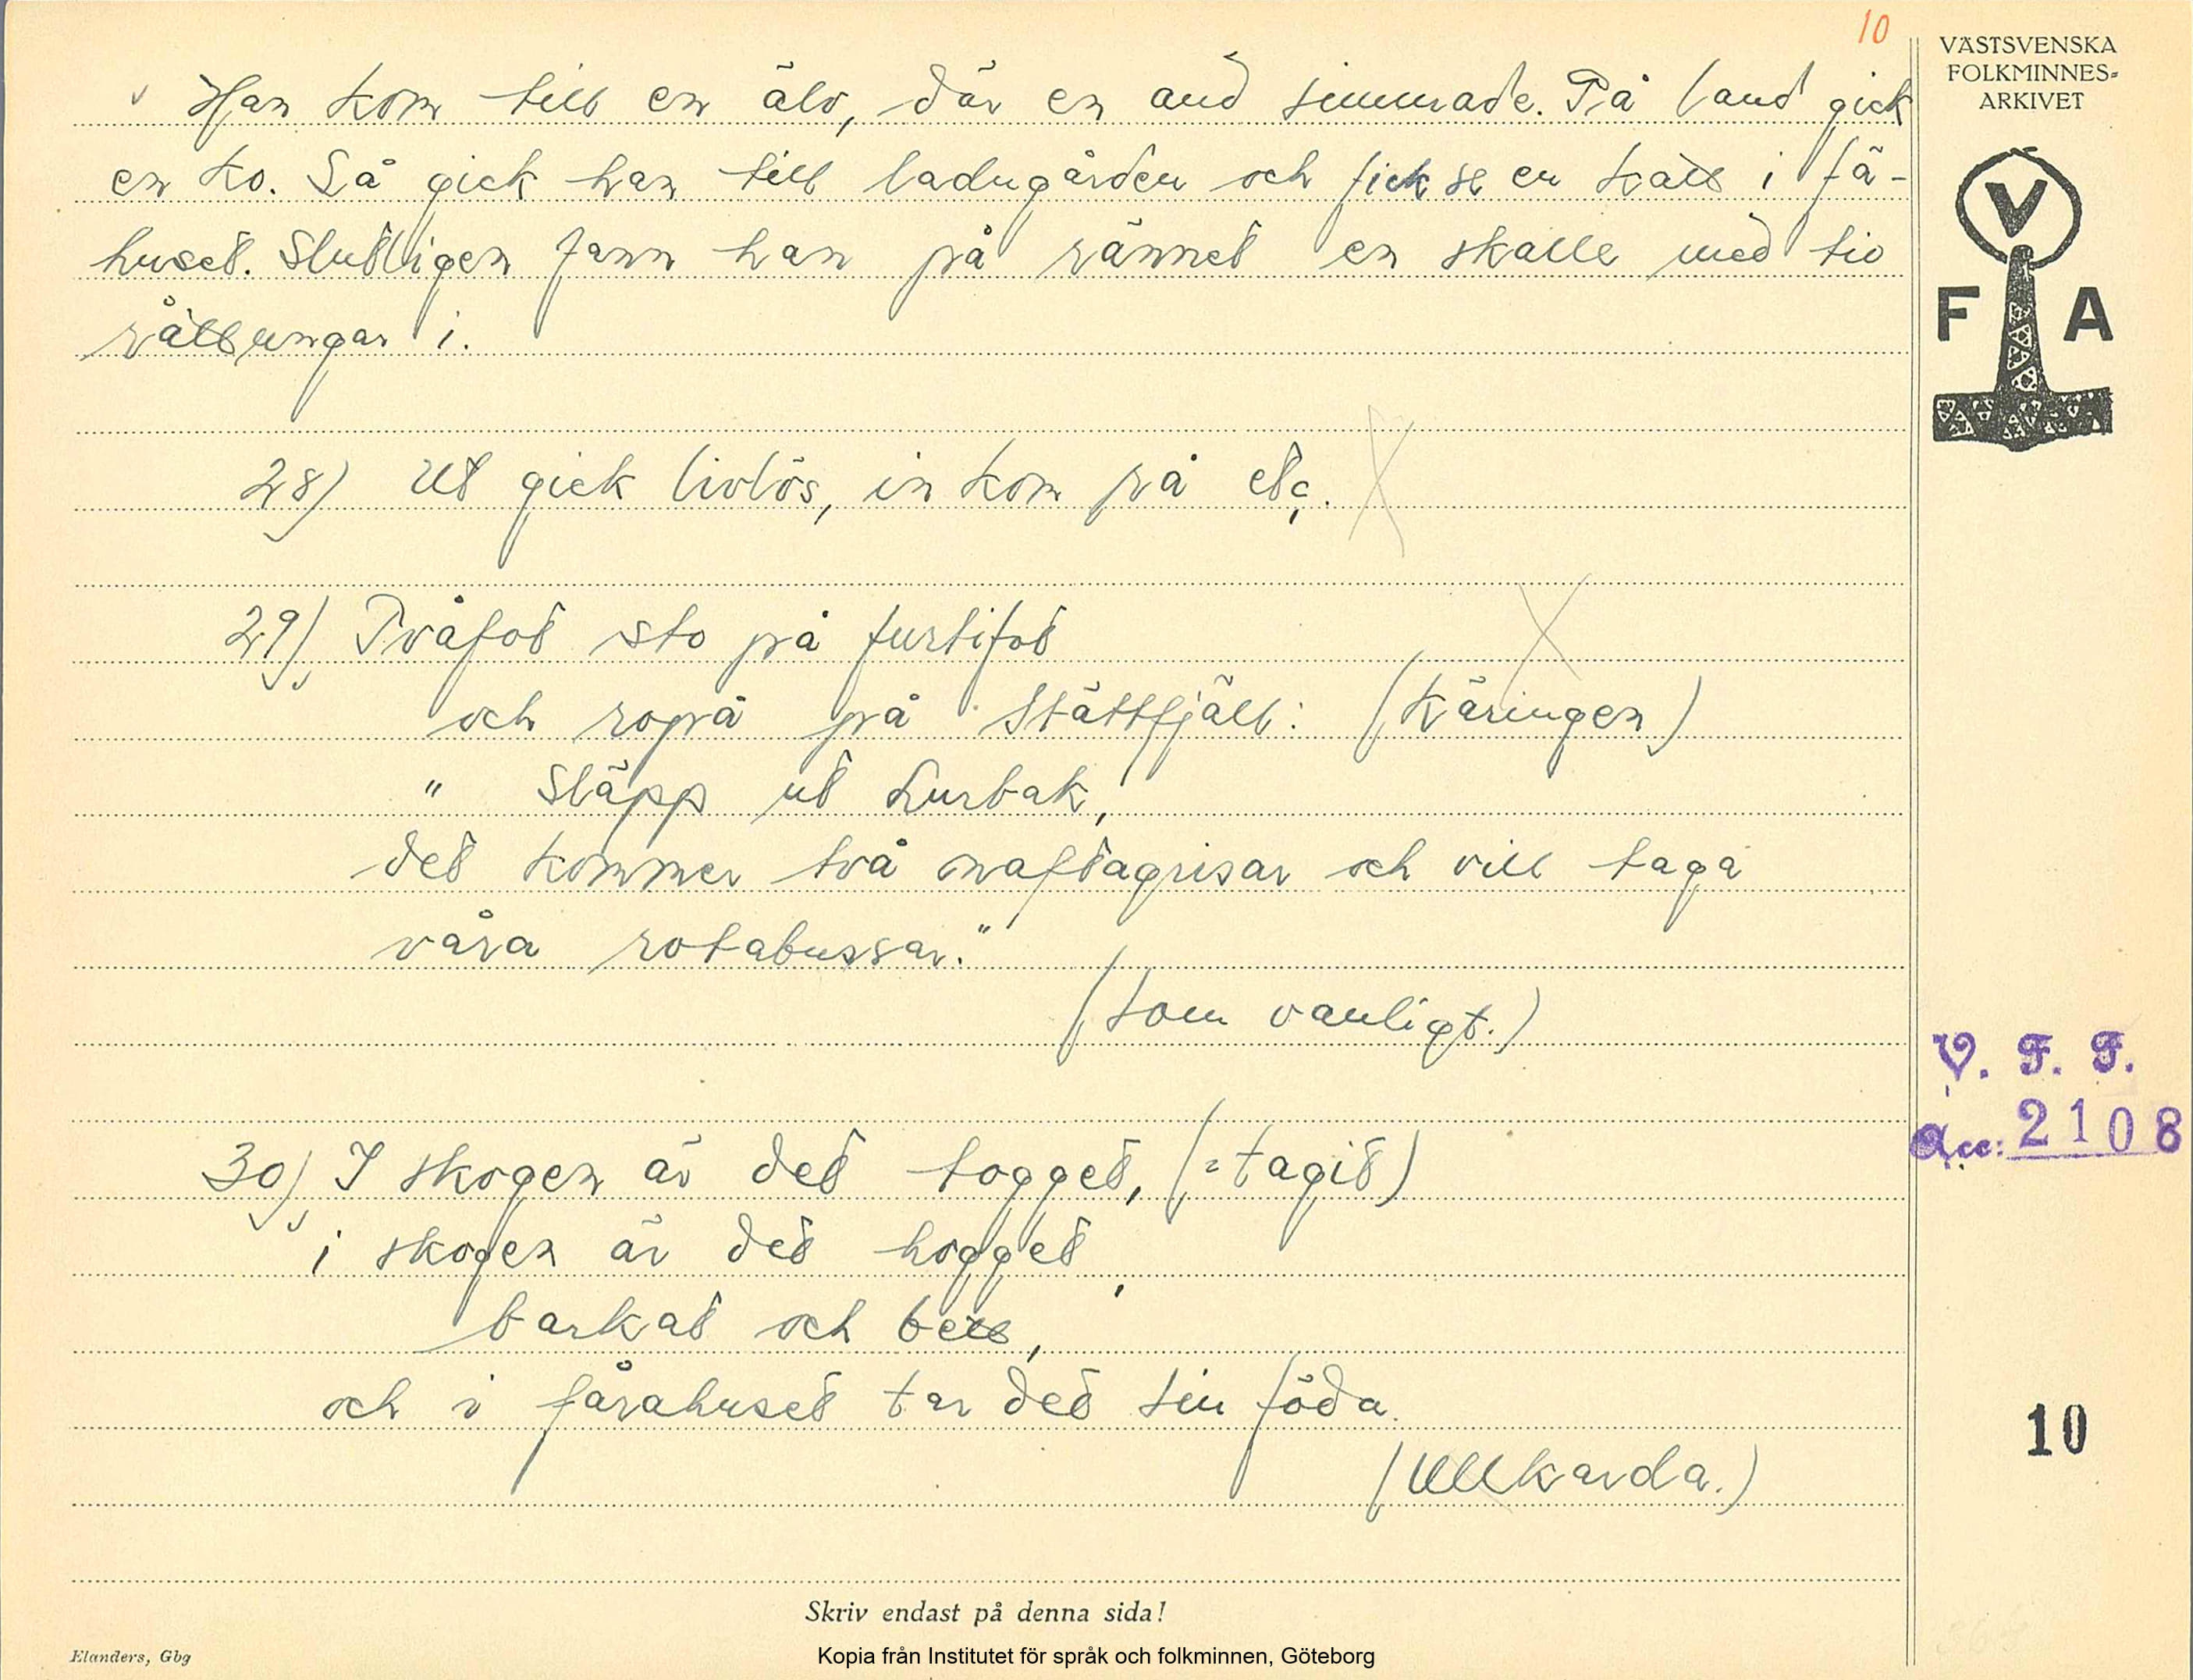 10
Han kom till en älv, där en and simmade. På land gick
en ko. Så gick han till ladugården och fick se en katt i fä-
huset. Slutligen fann han på rännet en skalle med tio
råttungar i.
28) Ut gick livlös, in kom på etc.
29) Tvåfot sto på furtifot
och ropå på Stättfjäll: (Käringen)
" Släpp ut Lurbak,
det kommer två naftagrisar och vill taga
våra rotabussar."
(Som vanligt.)
30) I skogen är det togget, (=tagit)
i skogen är det hogget,
barkat och bett,
och i fårahuset tar det sin föda.
(Ullkarda.)
Skriv endast på denna sida!
Elanders, Gbg
Kopia från Institutet för språk och folkminnen, Göteborg
VÄSTSVENSKA
FOLKMINNES=
ARKIVET
V
F A
V. F. F.
Acc: 2108
10